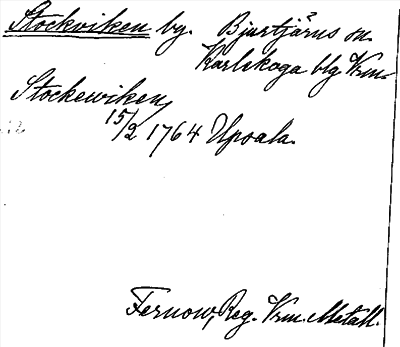 Stockviken bg. Bjurtjärns sn.
Karlskoga blg Vrm.
Stockewiken,
15/2 1764 Upsala.
Fernow, Reg. Vrm. Metall.